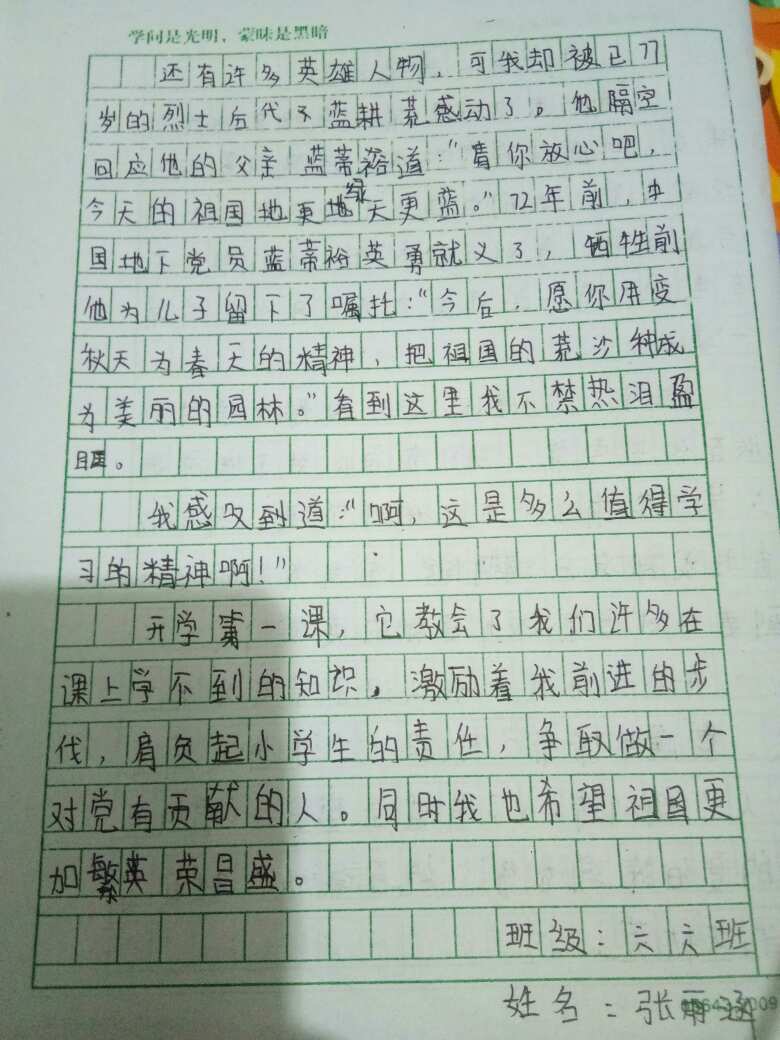 学问是光明，蒙昧是黑暗
还有许多英雄人物，可我却被已77
岁的烈士后代不蓝耕荒感动了。他隔空
回应他的父亲蓝蒂裕道：“请你放心吧，
今天的祖国地更地绿天更蓝。”72年前，中
国地下党员蓝蒂裕英勇就义了，牺牲前
他为儿子留下了嘱托：“今后，愿你用变
秋天为春天的精神，把祖国的荒沙种成
为美丽的园林。”看到这里我不禁热泪盈
眶。
我感叹到道：“啊，这是多么值得学
习的精神啊！”
开学第一课，它教会了我们许多在
课上学不到的知识，激励着我前进的步
伐，肩负起小学生的责任，争取做一个
对党有贡献的人。同时我也希望祖国更
加繁英荣昌盛。
班级：六六班
姓名：张雨涵